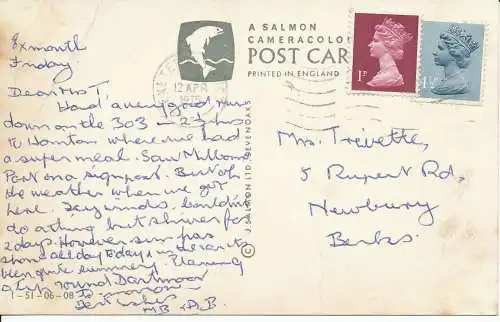 Exmouth
Friday.
Dear Mrs T,
Had a very good run
down on the 303 – 2½ hrs
to Honiton where we had
a super meal. Saw Milborne
Port on a signpost. But oh
the weather when we got
here. Icy winds, couldn't
do a thing but shiver for
2 days. However sun has
shone all day today &
been quite summery. Planning
a trip round Dartmoor
tomorrow.
Best wishes
MB & A.B.
1-51-06-08
A SALMON
CAMERACOLOUR
POST CARD
PRINTED IN ENGLAND
© J. SALMON LTD., SEVENOAKS
EXETER
12 APR
1P
Mrs. Trivette,
5 Rupert Rd,
Newbury
Berks.